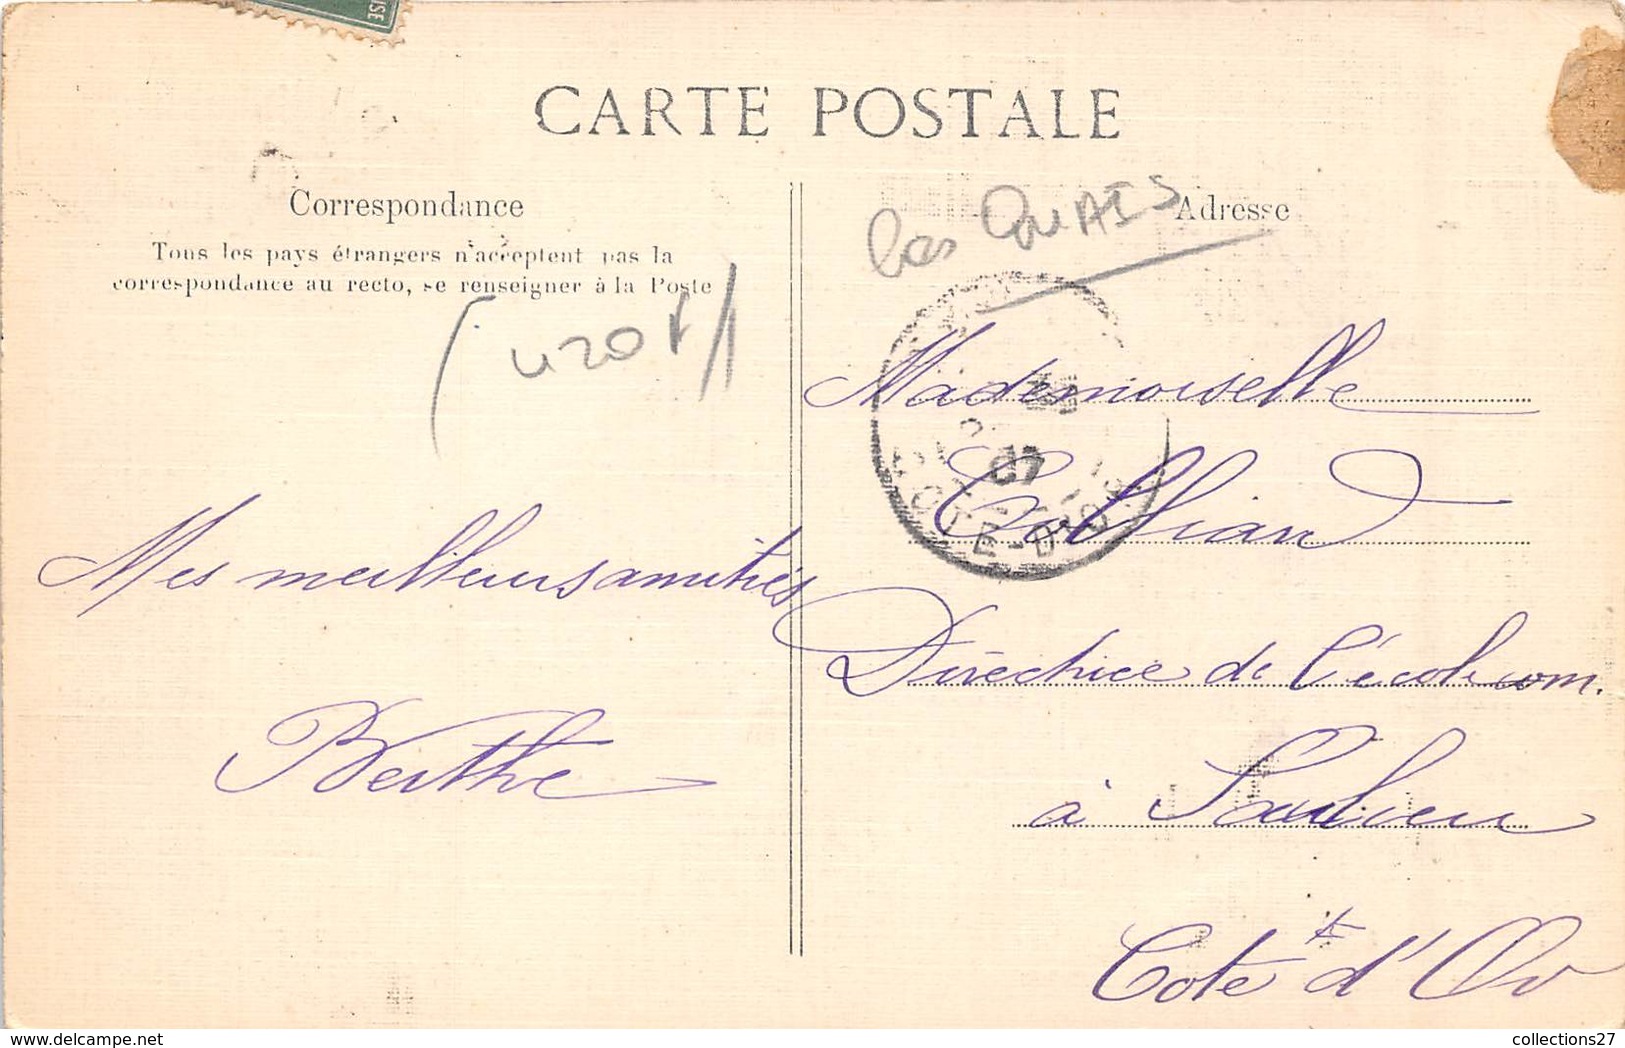 CARTE POSTALE
Correspondance
Tous les pays étrangers n'acceptent pas la
correspondance au recto, se renseigner à la Poste
Mes meilleurs amitiés
Berthe
Adresse
les QUAIS
Mademoiselle
Directrice de l'école com.
à Saulieu
Côte d'Or
07
COTE-D'O
delcampe.net
collections27